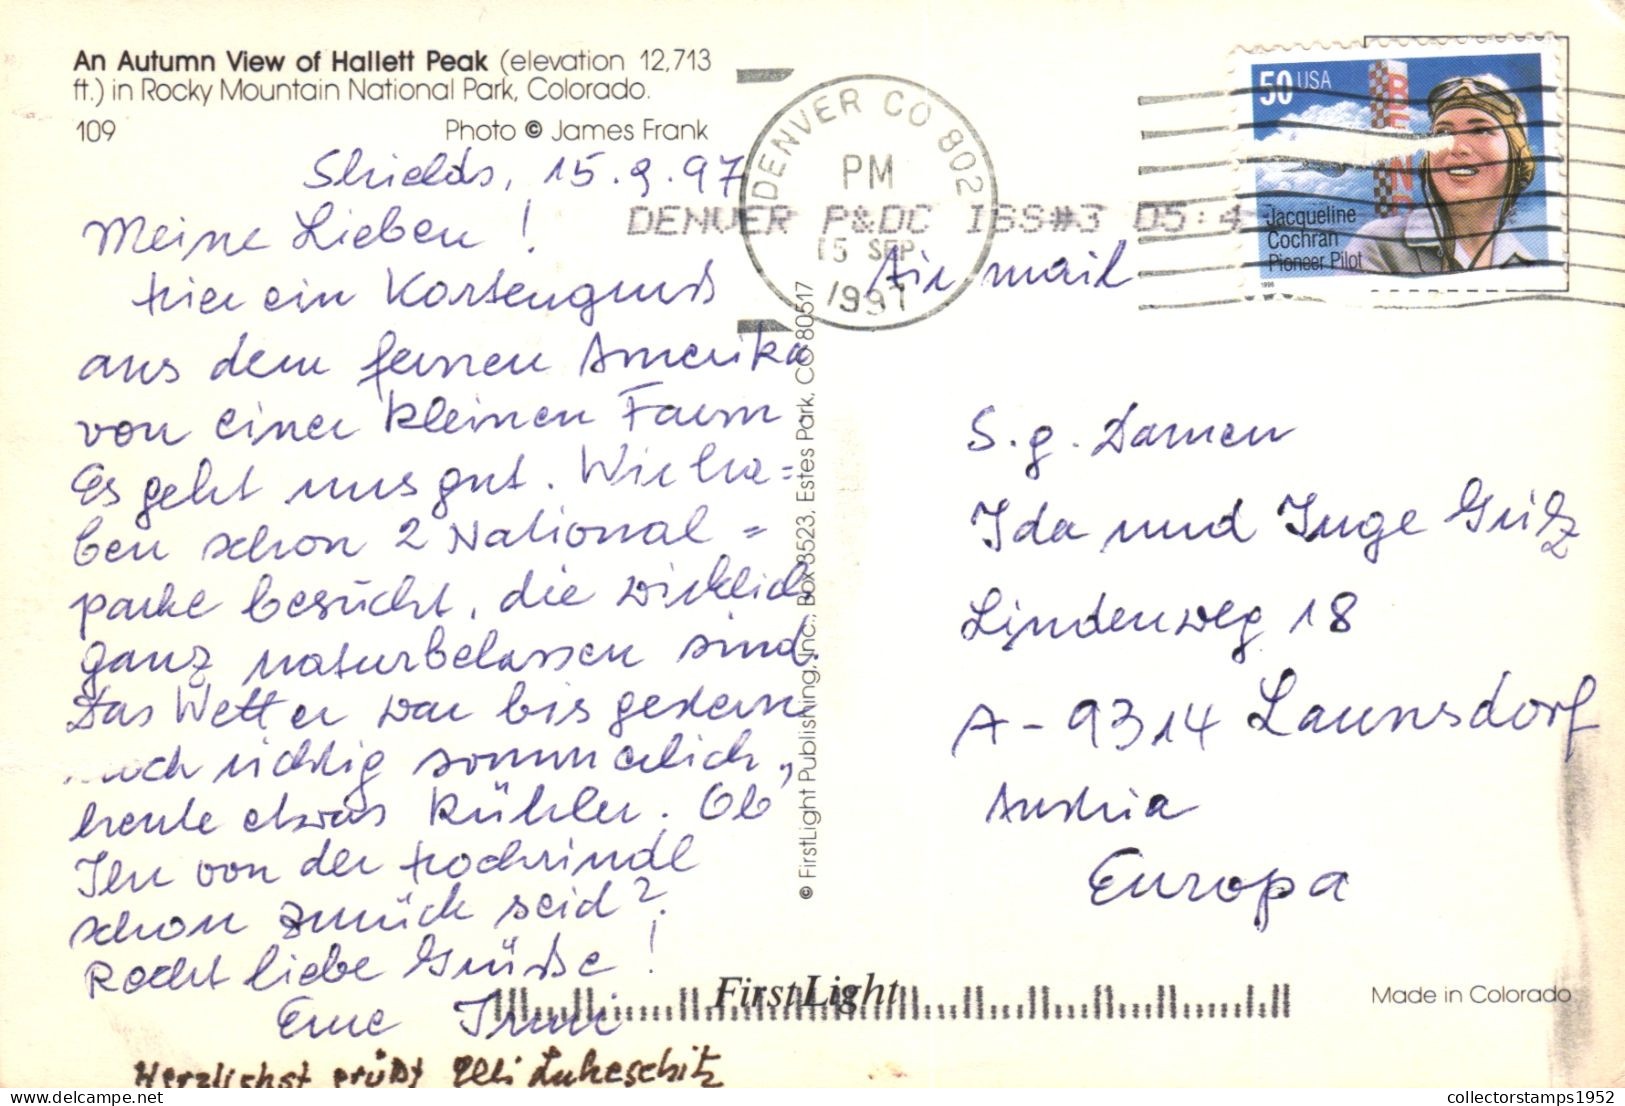 An Autumn View of Hallett Peak (elevation 12,713
ft.) in Rocky Mountain National Park, Colorado.
109 Photo © James Frank
Shields, 15.9.97
Meine Lieben!
Hier ein Kartengruß
aus dem fernen Amerika
von einer kleinen Farm
Es geht uns gut. Wir ha=
ben schon 2 National=
parke besucht, die wirklich
ganz naturbelassen sind.
Das Wetter war bis gestern
noch richtig sommerlich,
heute etwas kühler. Ob
Ihr von der Hochrindl
schon zurück seid?
Recht liebe Grüße!
Eure
Herzlichst grüßt Elli Lukeschitz
© FirstLight Publishing, Inc., Box 3523, Estes Park, CO 80517
DENVER CO 802
PM
15 SEP
1997
DENVER P&DC ISS#3 05:4
Air mail
50 USA
Jacqueline
Cochran
Pioneer Pilot
1996
S.g. Damen
Ida und Inge
Lindenweg 18
A-9314 Launsdorf
Austria
Europa
FirstLight
Made in Colorado
collectorstamps1952